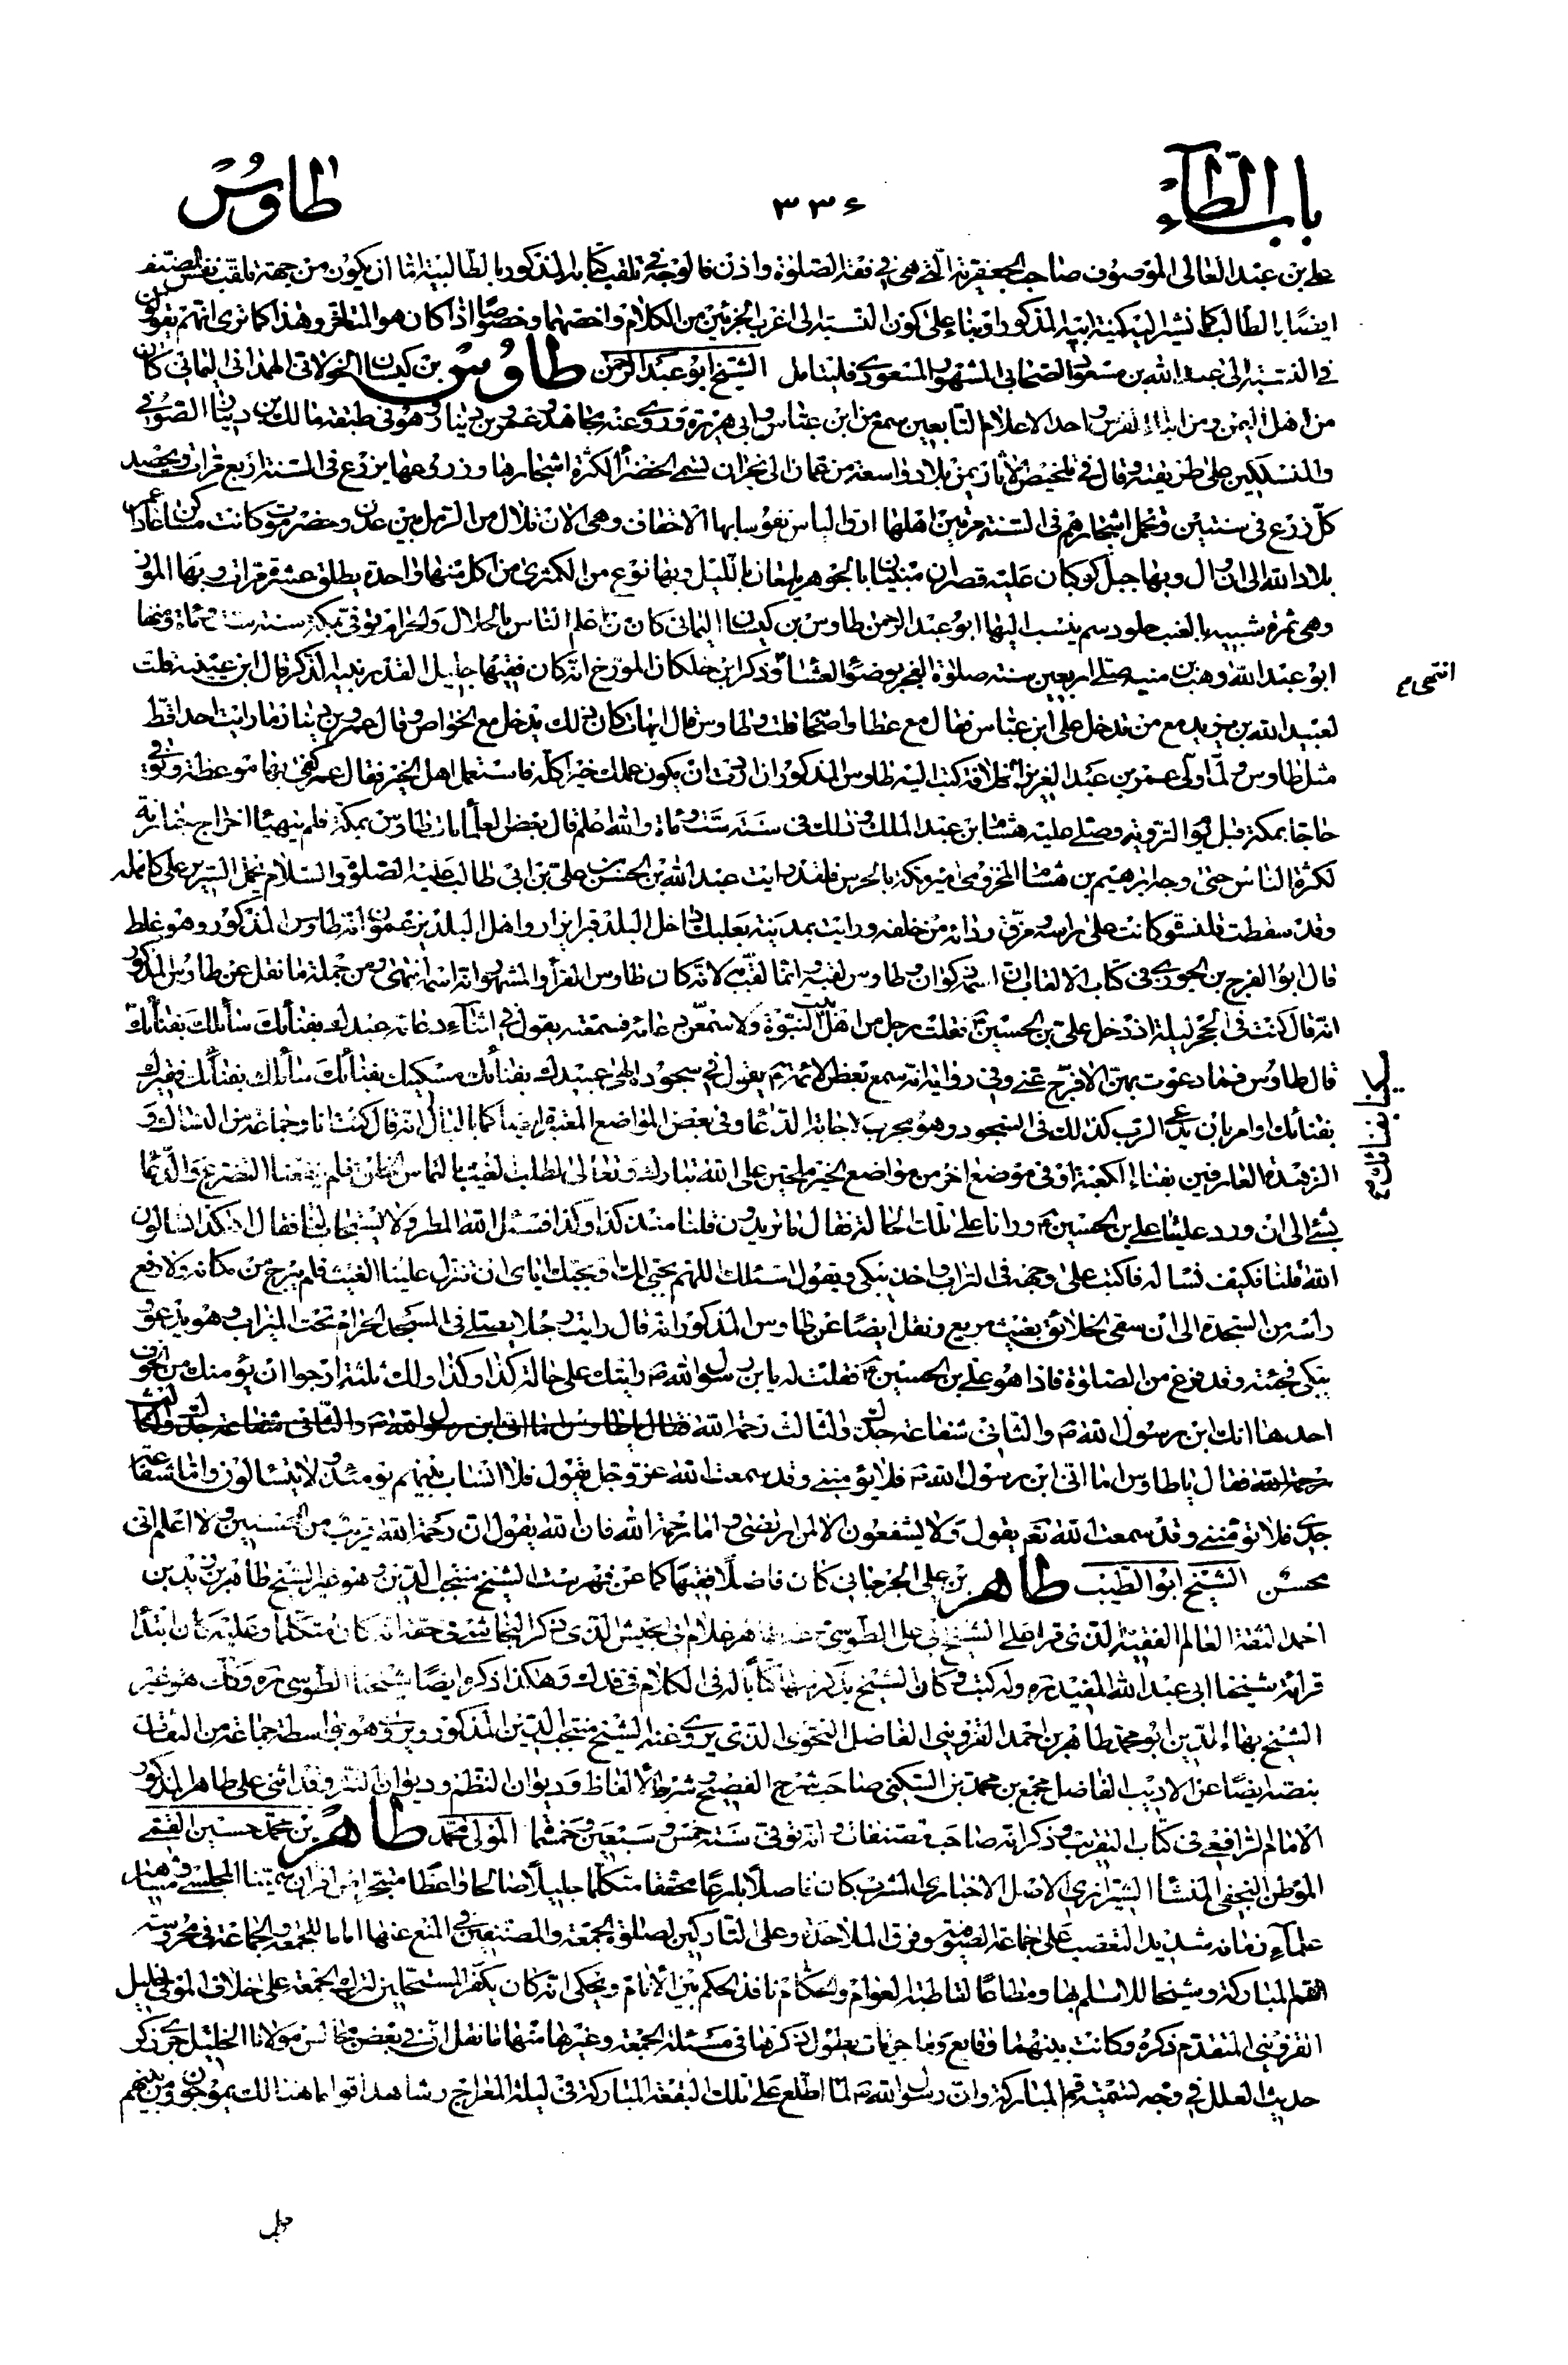 باب الطاء
٣٣۶
طاوس
علي بن عبد العالى الموصوف صاحب الجعفرية الّتى هى فى فقه الصّلوة واذن فالوجه فى تلقب كتابه المذكور بالطّالبيّة امّا ان يكون من جهة تلقّب نفس المصنّف
ايضًا بالطّالب كما نشير اليه بكنية ابيه المذكور او بناء على كون النسبة الى اغرب الجزئين من الكلام واخصّهما وخصوصًا اذا كان هو المتاخّر وهذا كما ترى انّهم يقولون
فى النسبة الى عبد الله بن مسعود الصّحابى المشهور المسعودى فليتامل الشيخ ابو عبد الرحمن طاوس بن كيسان الخولانى الهمدانى اليمانى كان
من اهل اليمن ومن ابناء الفرس واحد الاعلام التّابعين سمع من ابن عبّاس وابى هريرة وروى عنه مجاهد وعمرو بن دينار وهو فى طبقة مالك بن دينار الصّوفى
والمنسلكين على طريقته وقال فى تلخيص الآثار يمن بلاد واسعة من عمان الى نجران تسمى الخضراء لكثرة اشجارها وزروعها يزرع فى السّنة اربع مرّات ويحصد
كلّ زرع فى ستين وتحمل اشجارهم فى السّنة مرّتين اهلها ارقّ الناس نفوسا بها الاحقاف وهى الان تلال من الرّمل بين عدن وحضرموت وكانت مساكن عاد اعمر
بلاد الله الى ان قال وبها جبل كوكبان عليه قصران مبنيّان بالجوهر يلمعان باللّيل وبها نوع من الكمثرى من اكل منها واحدة يطلق عشر مرّات وبها الموز
وهى ثمرة شبيه بالعنب حلو دسم ينسب اليها ابو عبد الرحمن طاوس بن كيسان اليمانى كان من اعلم النّاس بالحلال والحرام توفى بمكة سنة ستّ ومائة ومنها
ابو عبد الله وهب بن منبه صلى اربعين سنة صلوة الفجر بوضوء العشاء وذكر ابن خلكان المورخ انّه كان فقيها جليل القدر نبيه الذكر قال ابن عيينه قلت
لعبيد الله بن يزيد مع من تدخل على ابن عباس فقال مع عطا واصحابه قلت وطاوس قال ايهات كان ذلك يدخل مع الخواص وقال عمرو بن دينار ما رايت احدا قطّ
مثل طاوس ولمّا ولّى عمر بن عبد العزيز الخلافة كتب اليه طاوس المذكور ان اردت ان يكون عملك خيرا كله فاستعمل اهل الخير فقال عمر كفى بها موعظة وتوفى
حاجّا بمكة قبل يوم التروية وصلّى عليه هشام بن عبد الملك وذلك فى سنة ستّ ومائة والله اعلم قال بعض العلماء مات طاوس بمكة فلم يتهيّا اخراج جنازته
لكثرة الناس حتى وجه ابرهيم بن هشام المخزومى امير مكة بالحرس فلقد رايت عبد الله بن الحسن بن على بن ابى طالب عليه الصلوة والسلام يحمل السرير على كاهله
وقد سقطت قلنسوة كانت على راسه ومزّق ردائه من خلفه ورايت بمدينة بعلبك داخل البلد قبرا يزار واهل البلد يزعمون انّه طاوس المذكور وهو غلط
قال ابو الفرج بن الجوزى فى كتاب الالقاب انّ اسمه ذكوان وطاوس لقبه وانّما لقّب به لانّه كان طاوس القراء والمشهور انّه اسمه انتهى ومن جملة ما نقل عن طاوس المذكور
انّه قال كنت فى الحجر ليلة اذ دخل على بن الحسين ع فقلت رجل من اهل بيت النبوّة ولاستمعنّ دعائه فسمعته يقول فى اثناء دعائه عبدك بفنائك سائلك بفنائك
قال طاوس فما دعوت بهنّ الا فرّج عنّى وفى رواية انّه سمع بعض الائمة ع يقول فى سجوده الهى عبيدك بفنائك مسكينك بفنائك سائلك بفنائك فقيرك
بفنائك وامر بان يدعى الرب كذلك فى السّجود وهو مجرب لاجابة الدّعاء وفى بعض المواضع المعتبرة ايضا كما بالبال انّه قال كنت انا وجماعة من النساك و
الزهدة العارفين بفناء الكعبة او فى موضع اخر من مواضع الخير ملحّين على الله تبارك وتعالى لطلب الغيث بالتماس فلم ينفعنا التضرع والدّعاء
بشئ الى ان ورد علينا على بن الحسين ع ورانا على تلك الحالة فقال ما تريدون قلنا منذ كذا وكذا نسئل الله المطر ولا يستجاب لنا فقال اهكذا تسالون
الله قلنا فكيف نساله فاكبّ على وجهه فى التراب واخذ يبكى ويقول اسئلك اللهم بحبّى لك وبحبّك ايّاى ان تنزل علينا الغيث فلم يبرح من مكانه ولا رفع
راسه من السّجدة الى ان سقى الخلائق بغيث مريع ونقل ايضًا عن طاوس المذكور انّه قال رايت رجلا يصلّى فى المسجد الحرام تحت الميزاب وهو يدعو و
يبكى فجئته وقد فرغ من الصلوة فاذا هو على بن الحسين ع فقلت له يا بن رسول الله ص رايتك على حالة كذا وكذا ولك ثلثة ارجوا ان يؤمنك من الخوف
احدها انك ابن رسول الله ص والثّانى شفاعة جدّك والثّالث رحمة الله فقال يا طاوس اما انى ابن رسول الله ص والثّانى شفاعة جدّك والثّالث
رحمة الله فقال يا طاوس اما انى ابن رسول الله ص فلا يؤمننى وقد سمعت الله عزّ وجل يقول فلا انساب بينهم يومئذ ولا يتسائلون وامّا شفاعة
جدّى فلا تؤمننى وقد سمعت الله تعم يقول ولا يشفعون الا لمن ارتضى وامّا رحمة الله فان الله يقول ان رحمة الله قريب من المحسنين ولا اعلم انى
محسن الشيخ ابو الطّيب طاهر بن على الجرجانى كان فاضلًا فقيها كما عن فهرست الشيخ منتجب الدين وهو غير الشيخ طاهر بن زيد بن
احمد الثقة العالم الفقيه الذى قرا على الشيخ ابى على الطوسى طاهر غلام ابى الجيش الذى ذكر النجاشى فى حقه انّه كان متكلّما وعليه كان ابتداء
قرائة شيخنا ابى عبد الله المفيد ره وله كتب وكان الشيخ يذكر منها كتابا له فى الكلام فى فدك وهكذا ذكره ايضًا شيخنا الطّوسى ره وذلك هو غير
الشيخ بهاء الدّين ابو محمّد طاهر بن احمد القزوينى الفاضل النّحوى الذى يروى عنه الشيخ منتجب الدّين المذكور ويروى هو بواسطة جماعة من الثقات
بنصه ايضًا عن الاديب الفاضل مجمع بن محمد بن السكنى صاحب شرح الفصيح وشرح الالفاظ وديوان النظم وديوان النثر وقد اثنى على طاهر المذكور
الامام الرافعى فى كتاب التقريب وذكر انه صاحب تصنفات وانه توفى سنة خمس وسبعين وخمسمائة المولى محمّد طاهر بن محمّد حسين القمّى
الموطن النجفى المنشا الشّيرازى الاصل الاخبارى المشرب كان فاضلًا بارعًا محققا متكلّما جليلًا صالحا واعظًا متبحّرا من اقران سميّنا المجلسى ومشاهير
علماء زمانه شديد التعصب على جماعة الصّوفيّة وفرق الملاحدة وعلى التّاركين لصلوة الجمعة والمصنّفين فى المنع عنها اماما للجمعة والجماعة فى محروسة
القم المباركة وشيخا للاسلم بها ومطاعا لقاطبة العوام والحكّام نافذ الحكم بين الانام ويحكى انّه كان يكفّر المستحلّين لترك الجمعة على خلاف المولى خليل
القزوينى المتقدم ذكره وكانت بينهما وقايع وماجريات يطول ذكرها فى مسئلة الجمعة وغيرها منها ما نقل انّ فى بعض مجالس مولانا الخليل جرى ذكر
حديث العلل فى وجه تسمية قم المباركة وانّ رسول الله ص لمّا اطّلع على تلك البقعة المباركة فى ليلة المعراج وشاهد اقواما هنالك يموجون ومن بينهم
انتهى م
مسكينك بفنائك م